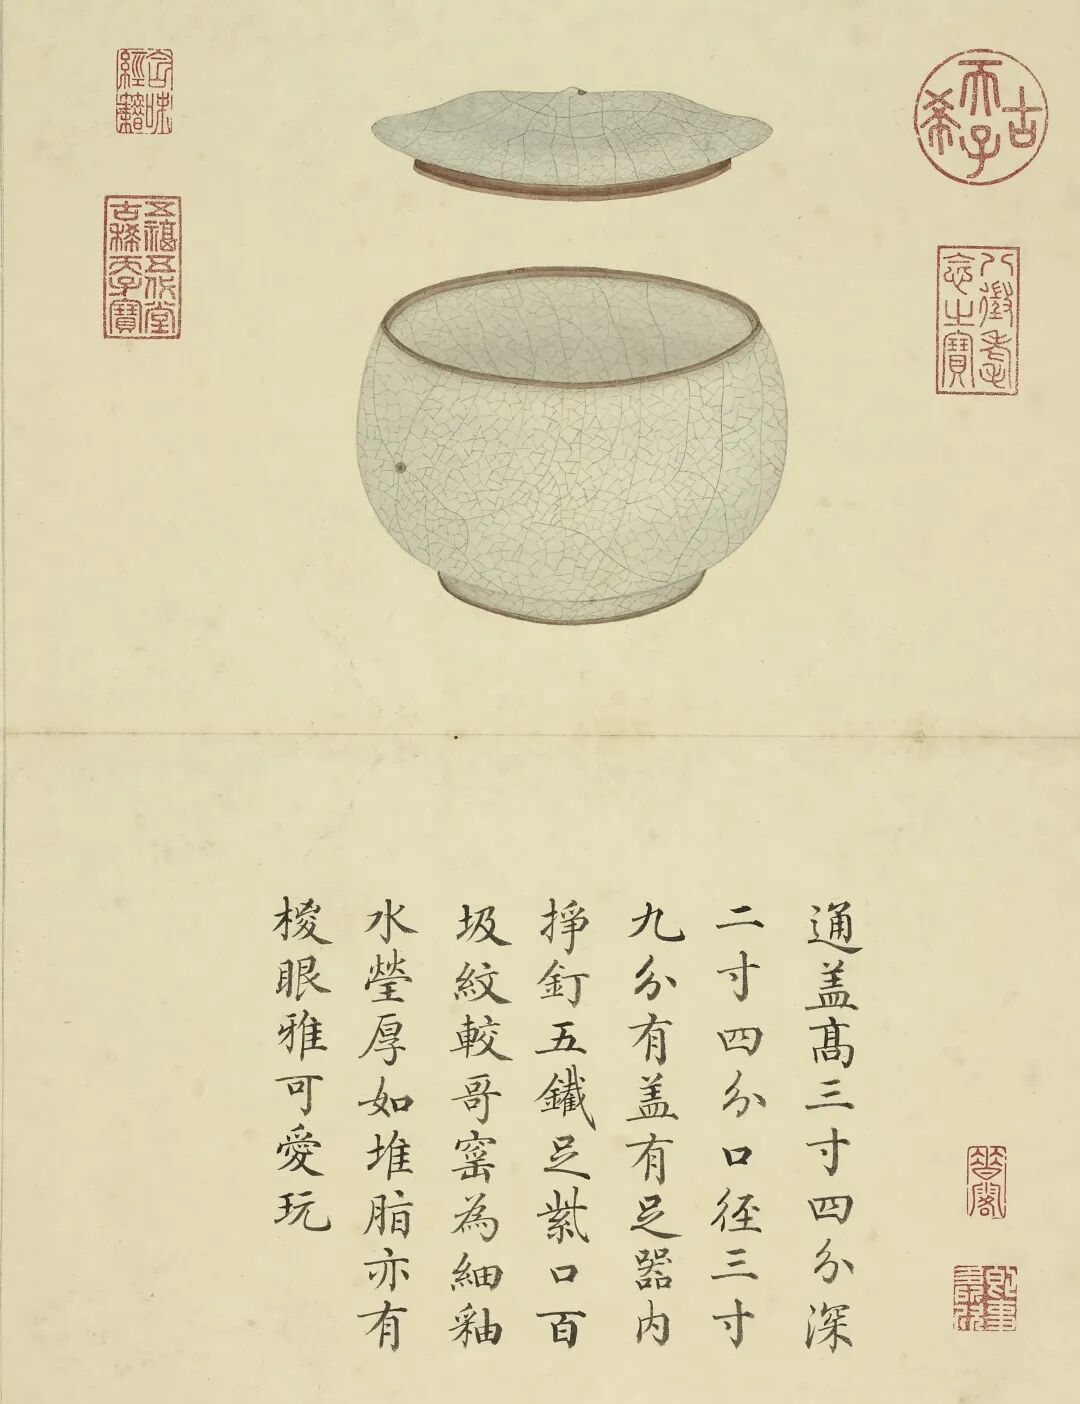 古希天子
八徵耄念之寶
五福五代堂古稀天子寶
含味經籍
通盖高三寸四分深
二寸四分口徑三寸
九分有盖有足器内
掙釘五鐵足紫口百
圾紋較哥窰為細釉
水瑩厚如堆脂亦有
椶眼雅可愛玩